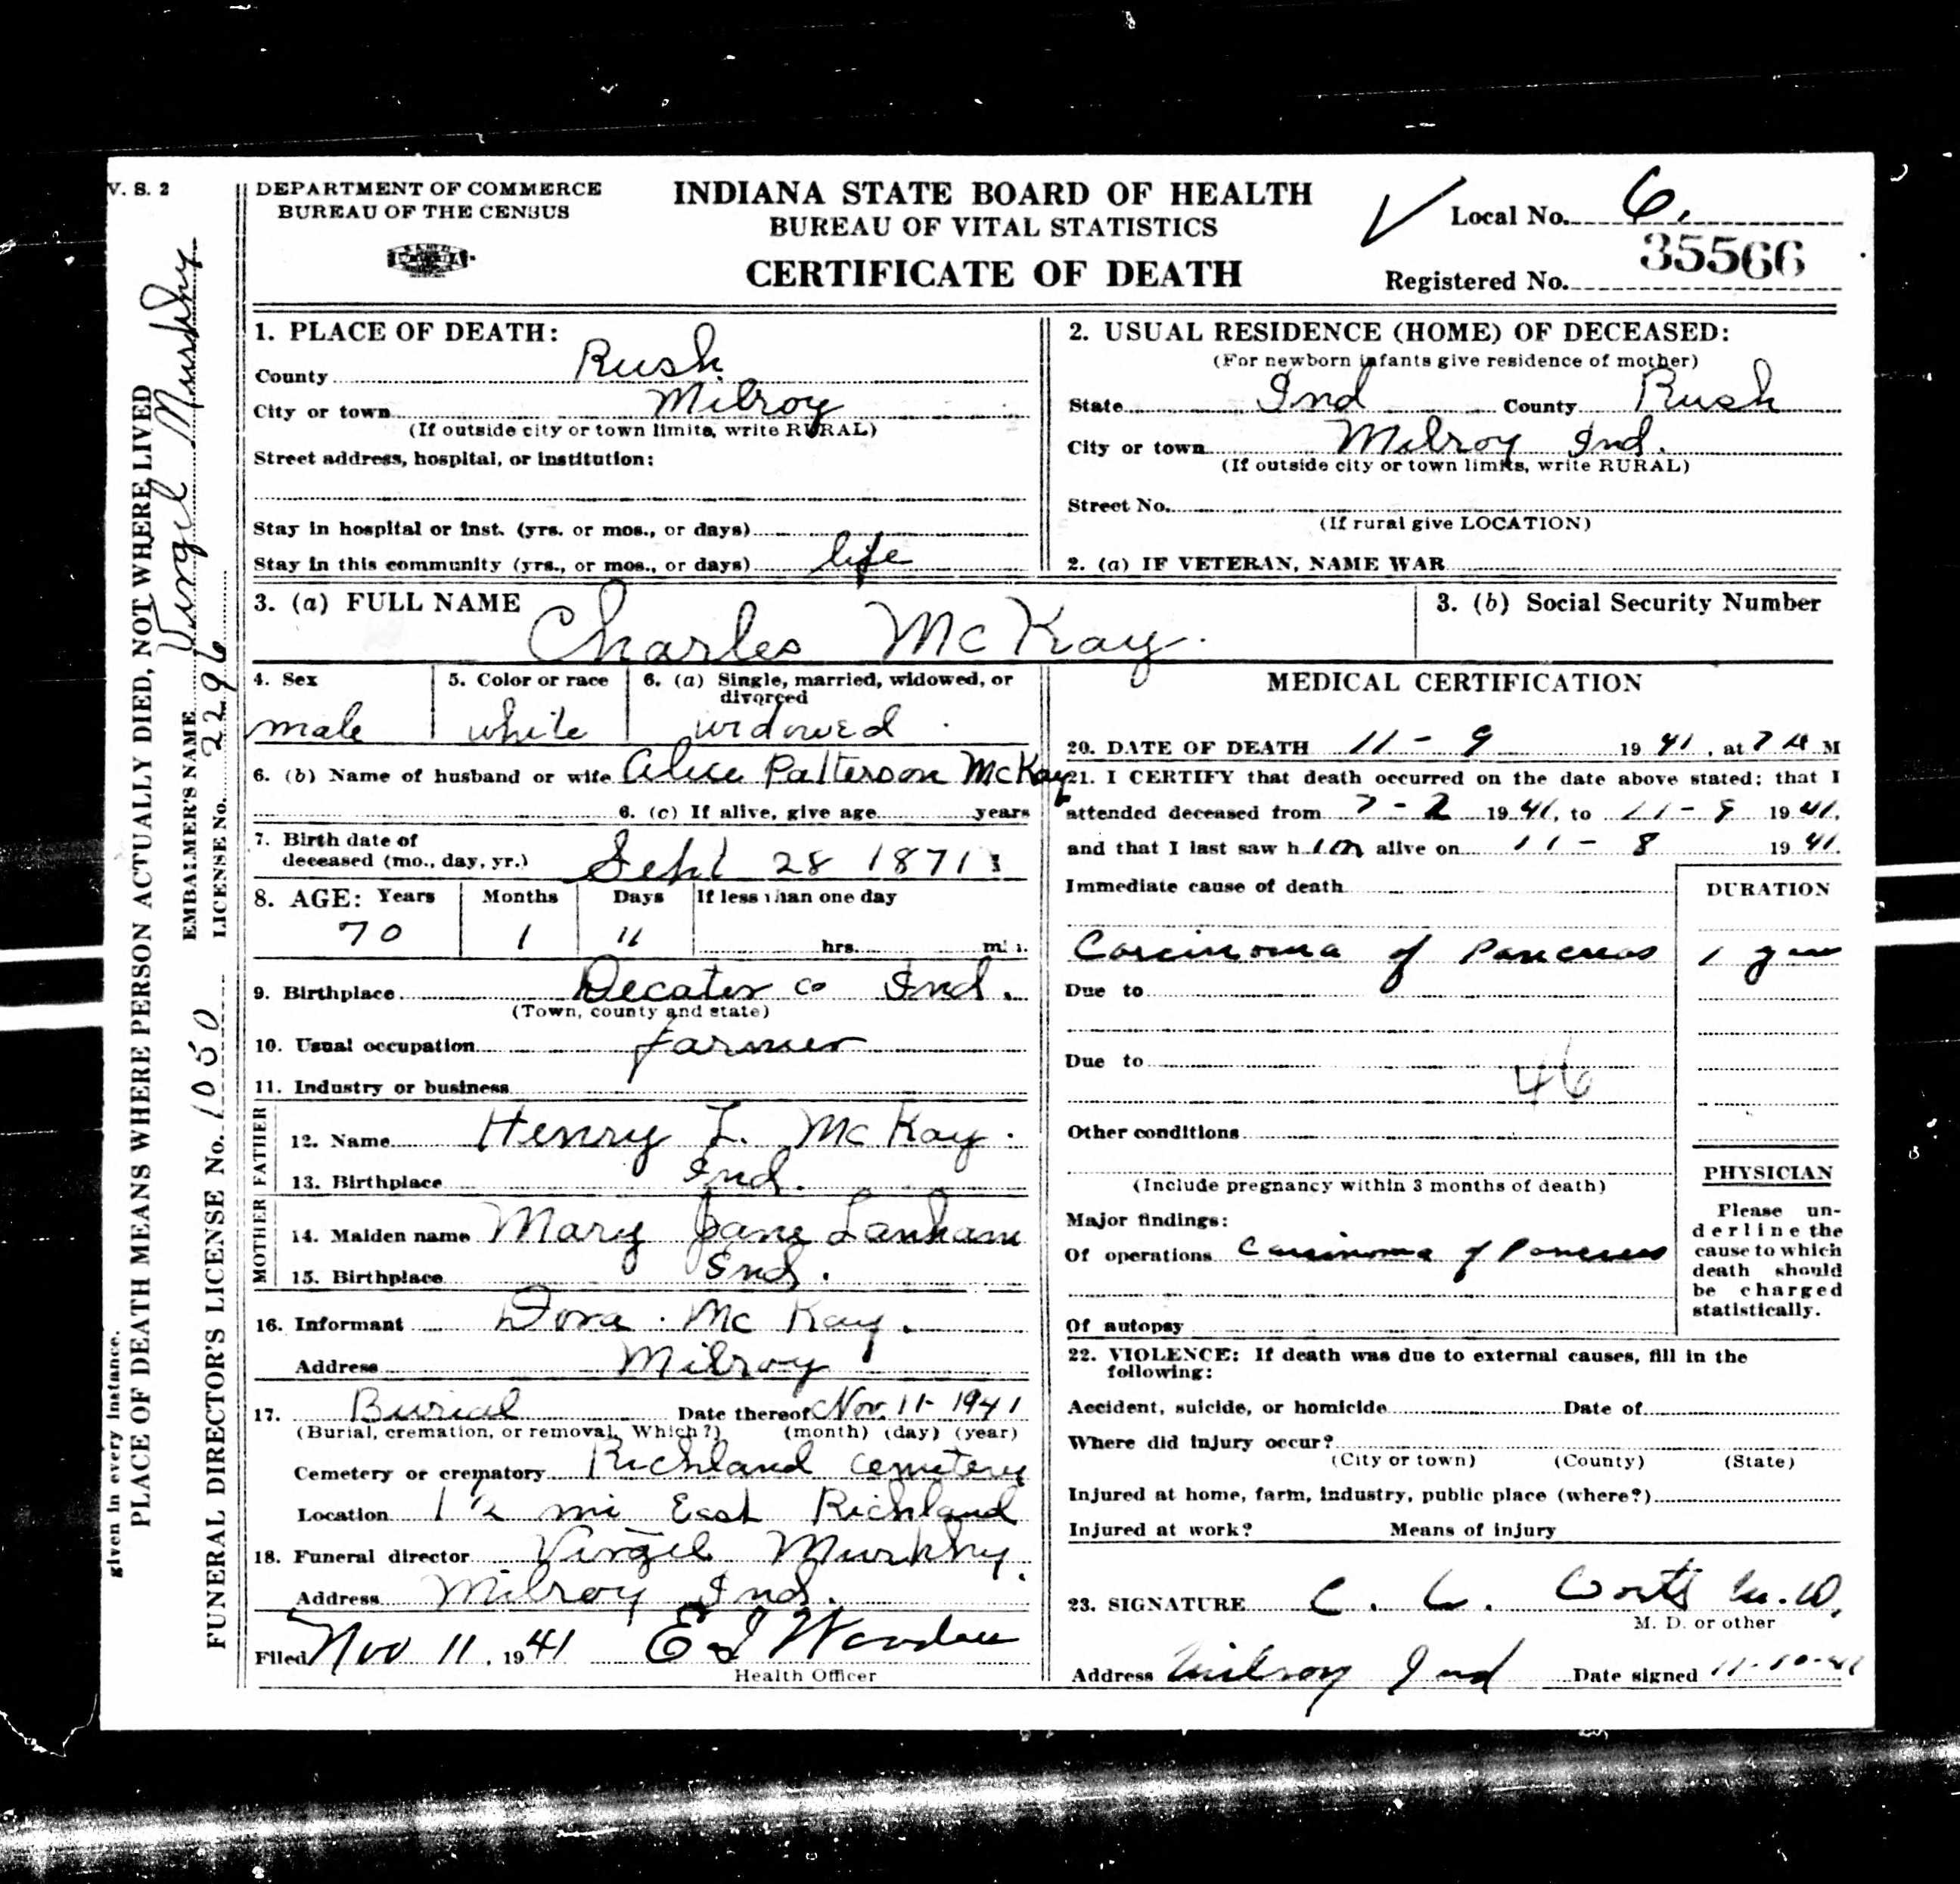 V. S. 2
DEPARTMENT OF COMMERCE
BUREAU OF THE CENSUS
INDIANA STATE BOARD OF HEALTH
BUREAU OF VITAL STATISTICS
CERTIFICATE OF DEATH
Local No. 6.
35566
Registered No.
given in every instance.
PLACE OF DEATH MEANS WHERE PERSON ACTUALLY DIED, NOT WHERE LIVED
EMBALMER'S NAME Virgil Murphy
LICENSE No. 2296
FUNERAL DIRECTOR'S LICENSE No. 1050
1. PLACE OF DEATH:
County Rush
City or town Milroy
(If outside city or town limits, write RURAL)
Street address, hospital, or institution:
Stay in hospital or inst. (yrs. or mos., or days)
Stay in this community (yrs., or mos., or days) life
2. USUAL RESIDENCE (HOME) OF DECEASED:
(For newborn infants give residence of mother)
State Ind County Rush
City or town Milroy Ind.
(If outside city or town limits, write RURAL)
Street No.
(If rural give LOCATION)
2. (a) IF VETERAN, NAME WAR
3. (a) FULL NAME Charles McKay.
3. (b) Social Security Number
4. Sex
male
5. Color or race
white
6. (a) Single, married, widowed, or
divorced
widowed
6. (b) Name of husband or wife Alice Patterson McKay
6. (c) If alive, give age years
7. Birth date of
deceased (mo., day, yr.) Sept 28 1871
8. AGE: Years Months Days If less than one day
70 1 11 hrs. min.
9. Birthplace Decatur Co Ind.
(Town, county and state)
10. Usual occupation farmer
11. Industry or business
FATHER
12. Name Henry L. McKay.
13. Birthplace Ind.
MOTHER
14. Maiden name Mary Jane Lanham
15. Birthplace Ind.
16. Informant Dora McKay.
Address Milroy
17. Burial Date thereof Nov. 11-1941
(Burial, cremation, or removal. Which?) (month) (day) (year)
Cemetery or crematory Richland Cemetery
Location 1 ½ mi East Richland
18. Funeral director Virgil Murphy.
Address Milroy Ind.
Filed Nov 11, 1941
Health Officer
MEDICAL CERTIFICATION
20. DATE OF DEATH 11-9 1941, at 7 M
21. I CERTIFY that death occurred on the date above stated; that I
attended deceased from 7-2 1941, to 11-9 1941,
and that I last saw him alive on 11-8 1941.
Immediate cause of death
DURATION
Carcinoma of Pancreas 1 year
Due to
Due to
46
Other conditions
(Include pregnancy within 3 months of death)
Major findings:
Of operations Carcinoma of Pancreas
Of autopsy
PHYSICIAN
Please un-
derline the
cause to which
death should
be charged
statistically.
22. VIOLENCE: If death was due to external causes, fill in the
following:
Accident, suicide, or homicide Date of
Where did injury occur?
(City or town) (County) (State)
Injured at home, farm, industry, public place (where?)
Injured at work? Means of injury
23. SIGNATURE M.D.
M. D. or other
Address Milroy Ind Date signed 11-10-41